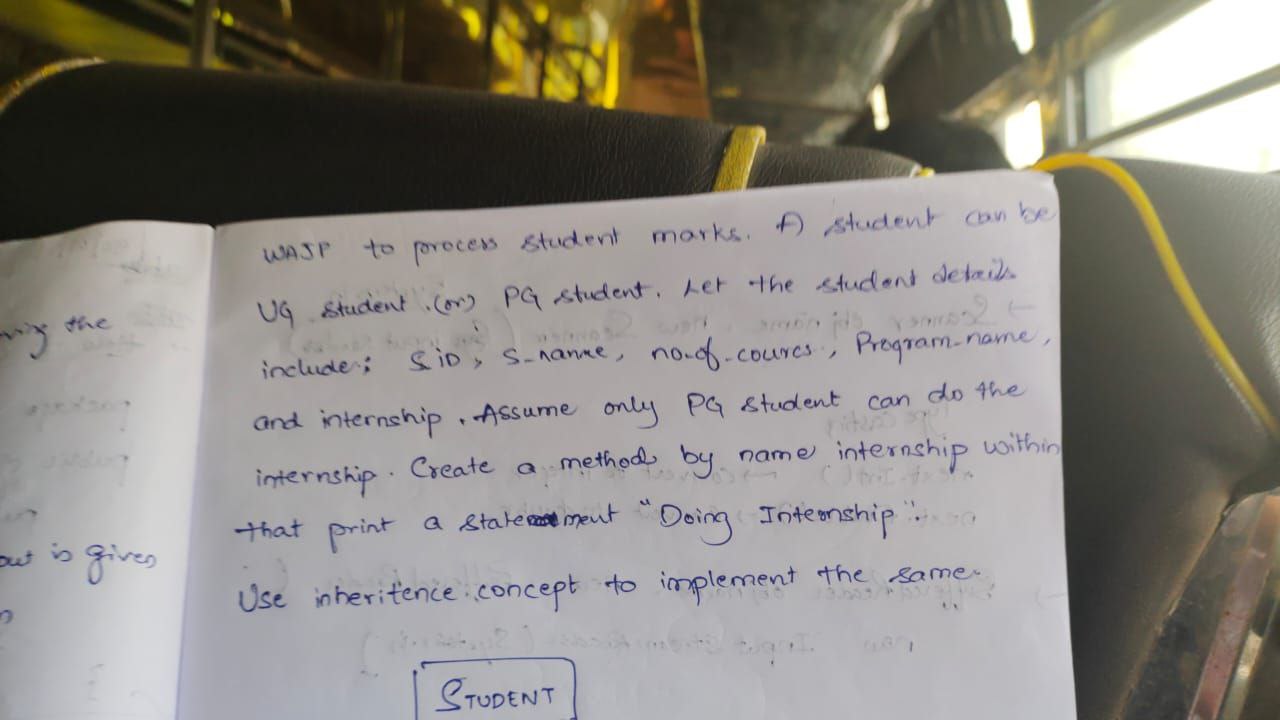 ving the
out is given
WAJP to process student marks. A student can be
UG student (or) PG student. Let the student details
include: SID, S-name, no.of-cources, Program-name,
and internship. Assume only PG student can do the
internship. Create a method by name internship within
that print a statement "Doing Internship".
Use inheritence concept to implement the same.
STUDENT